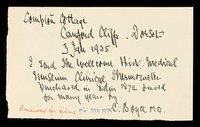 Compton Cottage
Canford Cliffs. Dorset
3 Jan 1935
I send the Wellcome Hist. Medical
Museum Clinical Thermometer
purchased in 1872 &used
for many years by
C. M.D.